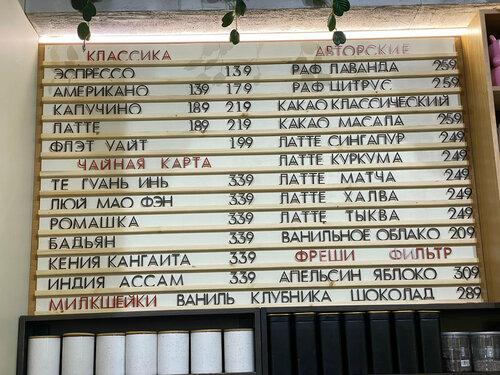 КЛАССИКА
ЭСПРЕССО 139
АМЕРИКАНО 139 179
КАПУЧИНО 189 219
ЛАТТЕ 189 219
ФЛЭТ УАЙТ 199
ЧАЙНАЯ КАРТА
ТЕ ГУАНЬ ИНЬ 339
ЛЮЙ МАО ФЭН 339
РОМАШКА 339
БАДЬЯН 339
КЕНИЯ КАНГАИТА 339
ИНДИЯ АССАМ 339
АВТОРСКИЕ
РАФ ЛАВАНДА 259
РАФ ЦИТРУС 259
КАКАО КЛАССИЧЕСКИЙ
КАКАО МАСАЛА 259
ЛАТТЕ СИНГАПУР 249
ЛАТТЕ КУРКУМА 249
ЛАТТЕ МАТЧА 249
ЛАТТЕ ХАЛВА 249
ЛАТТЕ ТЫКВА 249
ВАНИЛЬНОЕ ОБЛАКО 209
ФРЕШИ ФИЛЬТР
АПЕЛЬСИН ЯБЛОКО 309
МИЛКШЕЙКИ ВАНИЛЬ КЛУБНИКА ШОКОЛАД 289